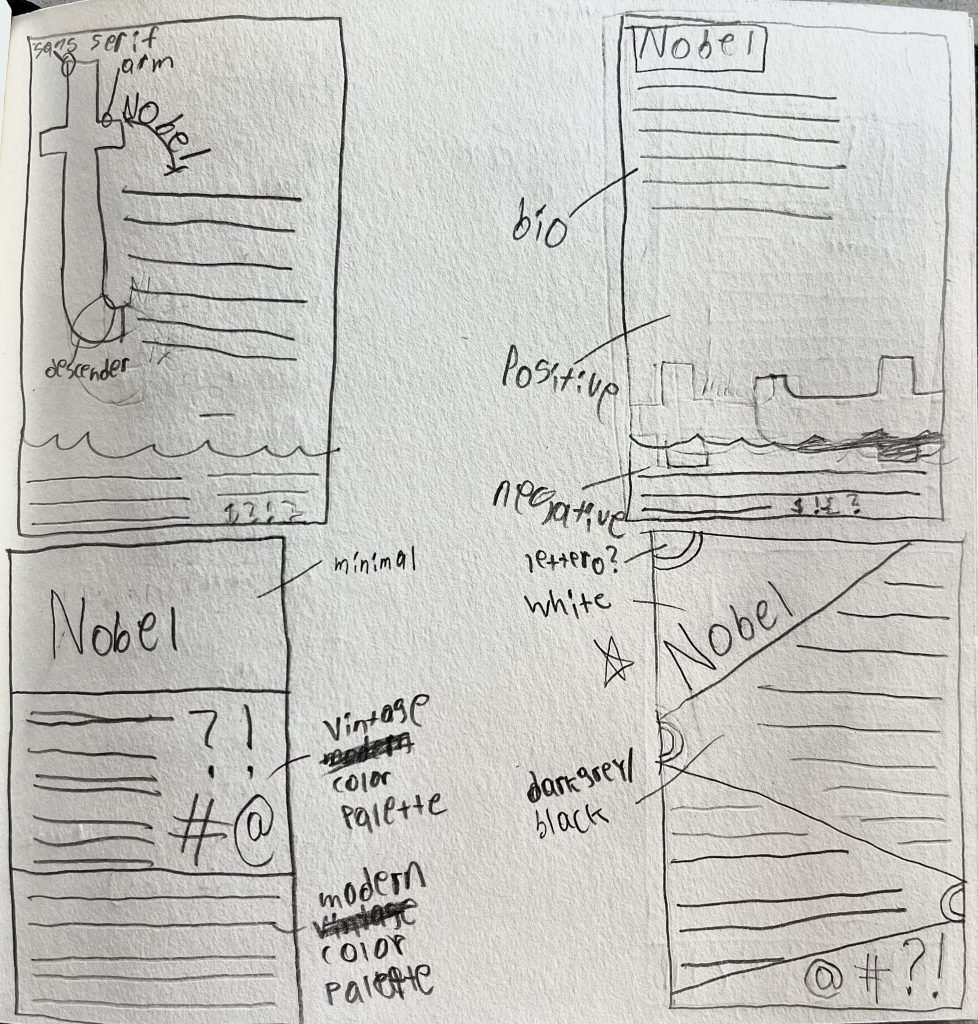 sans serif
arm
Nobel
descender
$?!?
Nobel
bio
Positive
negative
$!£?
Nobel
minimal
?!
#@
vintage
color
palette
modern
color
palette
rettero?
white
Nobel
darkgrey/
black
@#?!